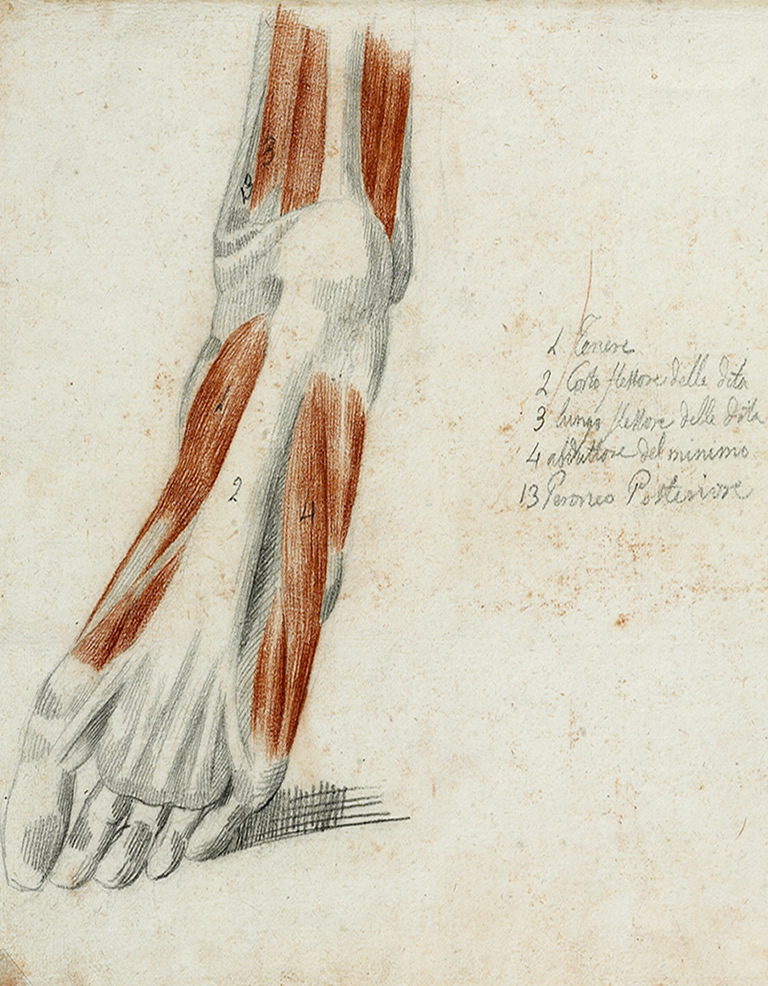 3
13
1
2
4
1 Tenere
2 Corto flessore delle dita
3 lungo flessore delle dita
4 abduttore del minimo
13 Peroneo Posteriore